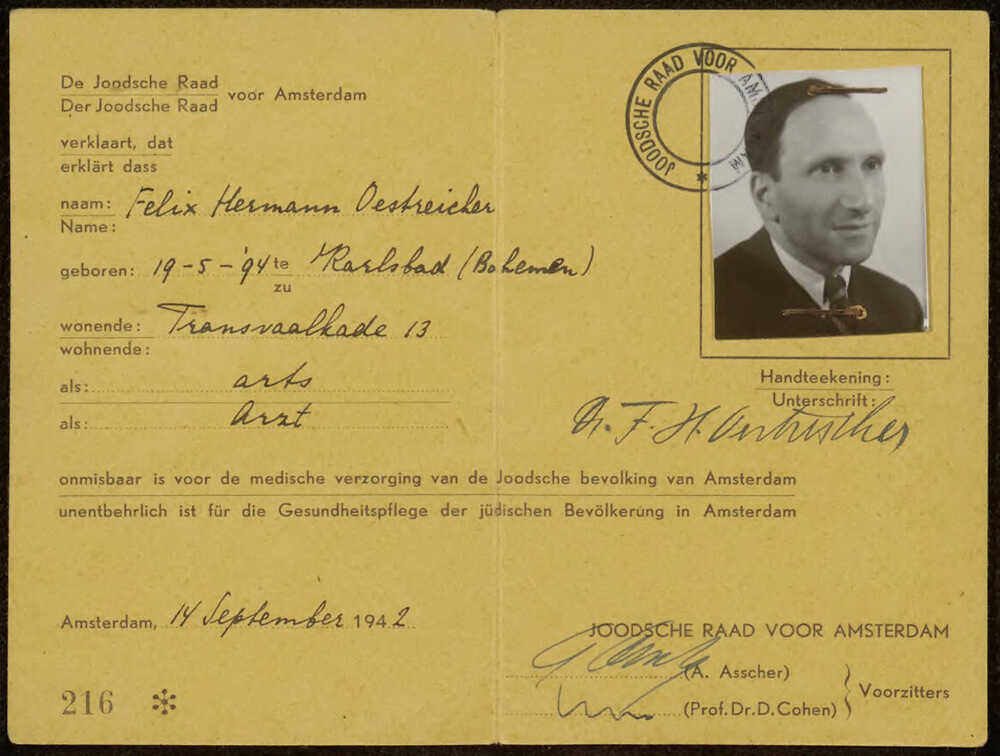 De Joodsche Raad
Der Joodsche Raad voor Amsterdam
verklaart, dat
erklärt dass
naam: Felix Hermann Oestreicher
Name:
geboren: 19-5-'94 te Karlsbad (Bohemen)
zu
wonende: Transvaalkade 13
wohnende:
als: arts
als: Arzt
JOODSCHE RAAD VOOR AM
Handteekening:
Unterschrift:
Dr. F. H. Oestreicher
onmisbaar is voor de medische verzorging van de Joodsche bevolking van Amsterdam
unentbehrlich ist für die Gesundheitspflege der jüdischen Bevölkerung in Amsterdam
Amsterdam, 14 September 1942
JOODSCHE RAAD VOOR AMSTERDAM
(A. Asscher)
(Prof. Dr. D. Cohen)
Voorzitters
216 ✻